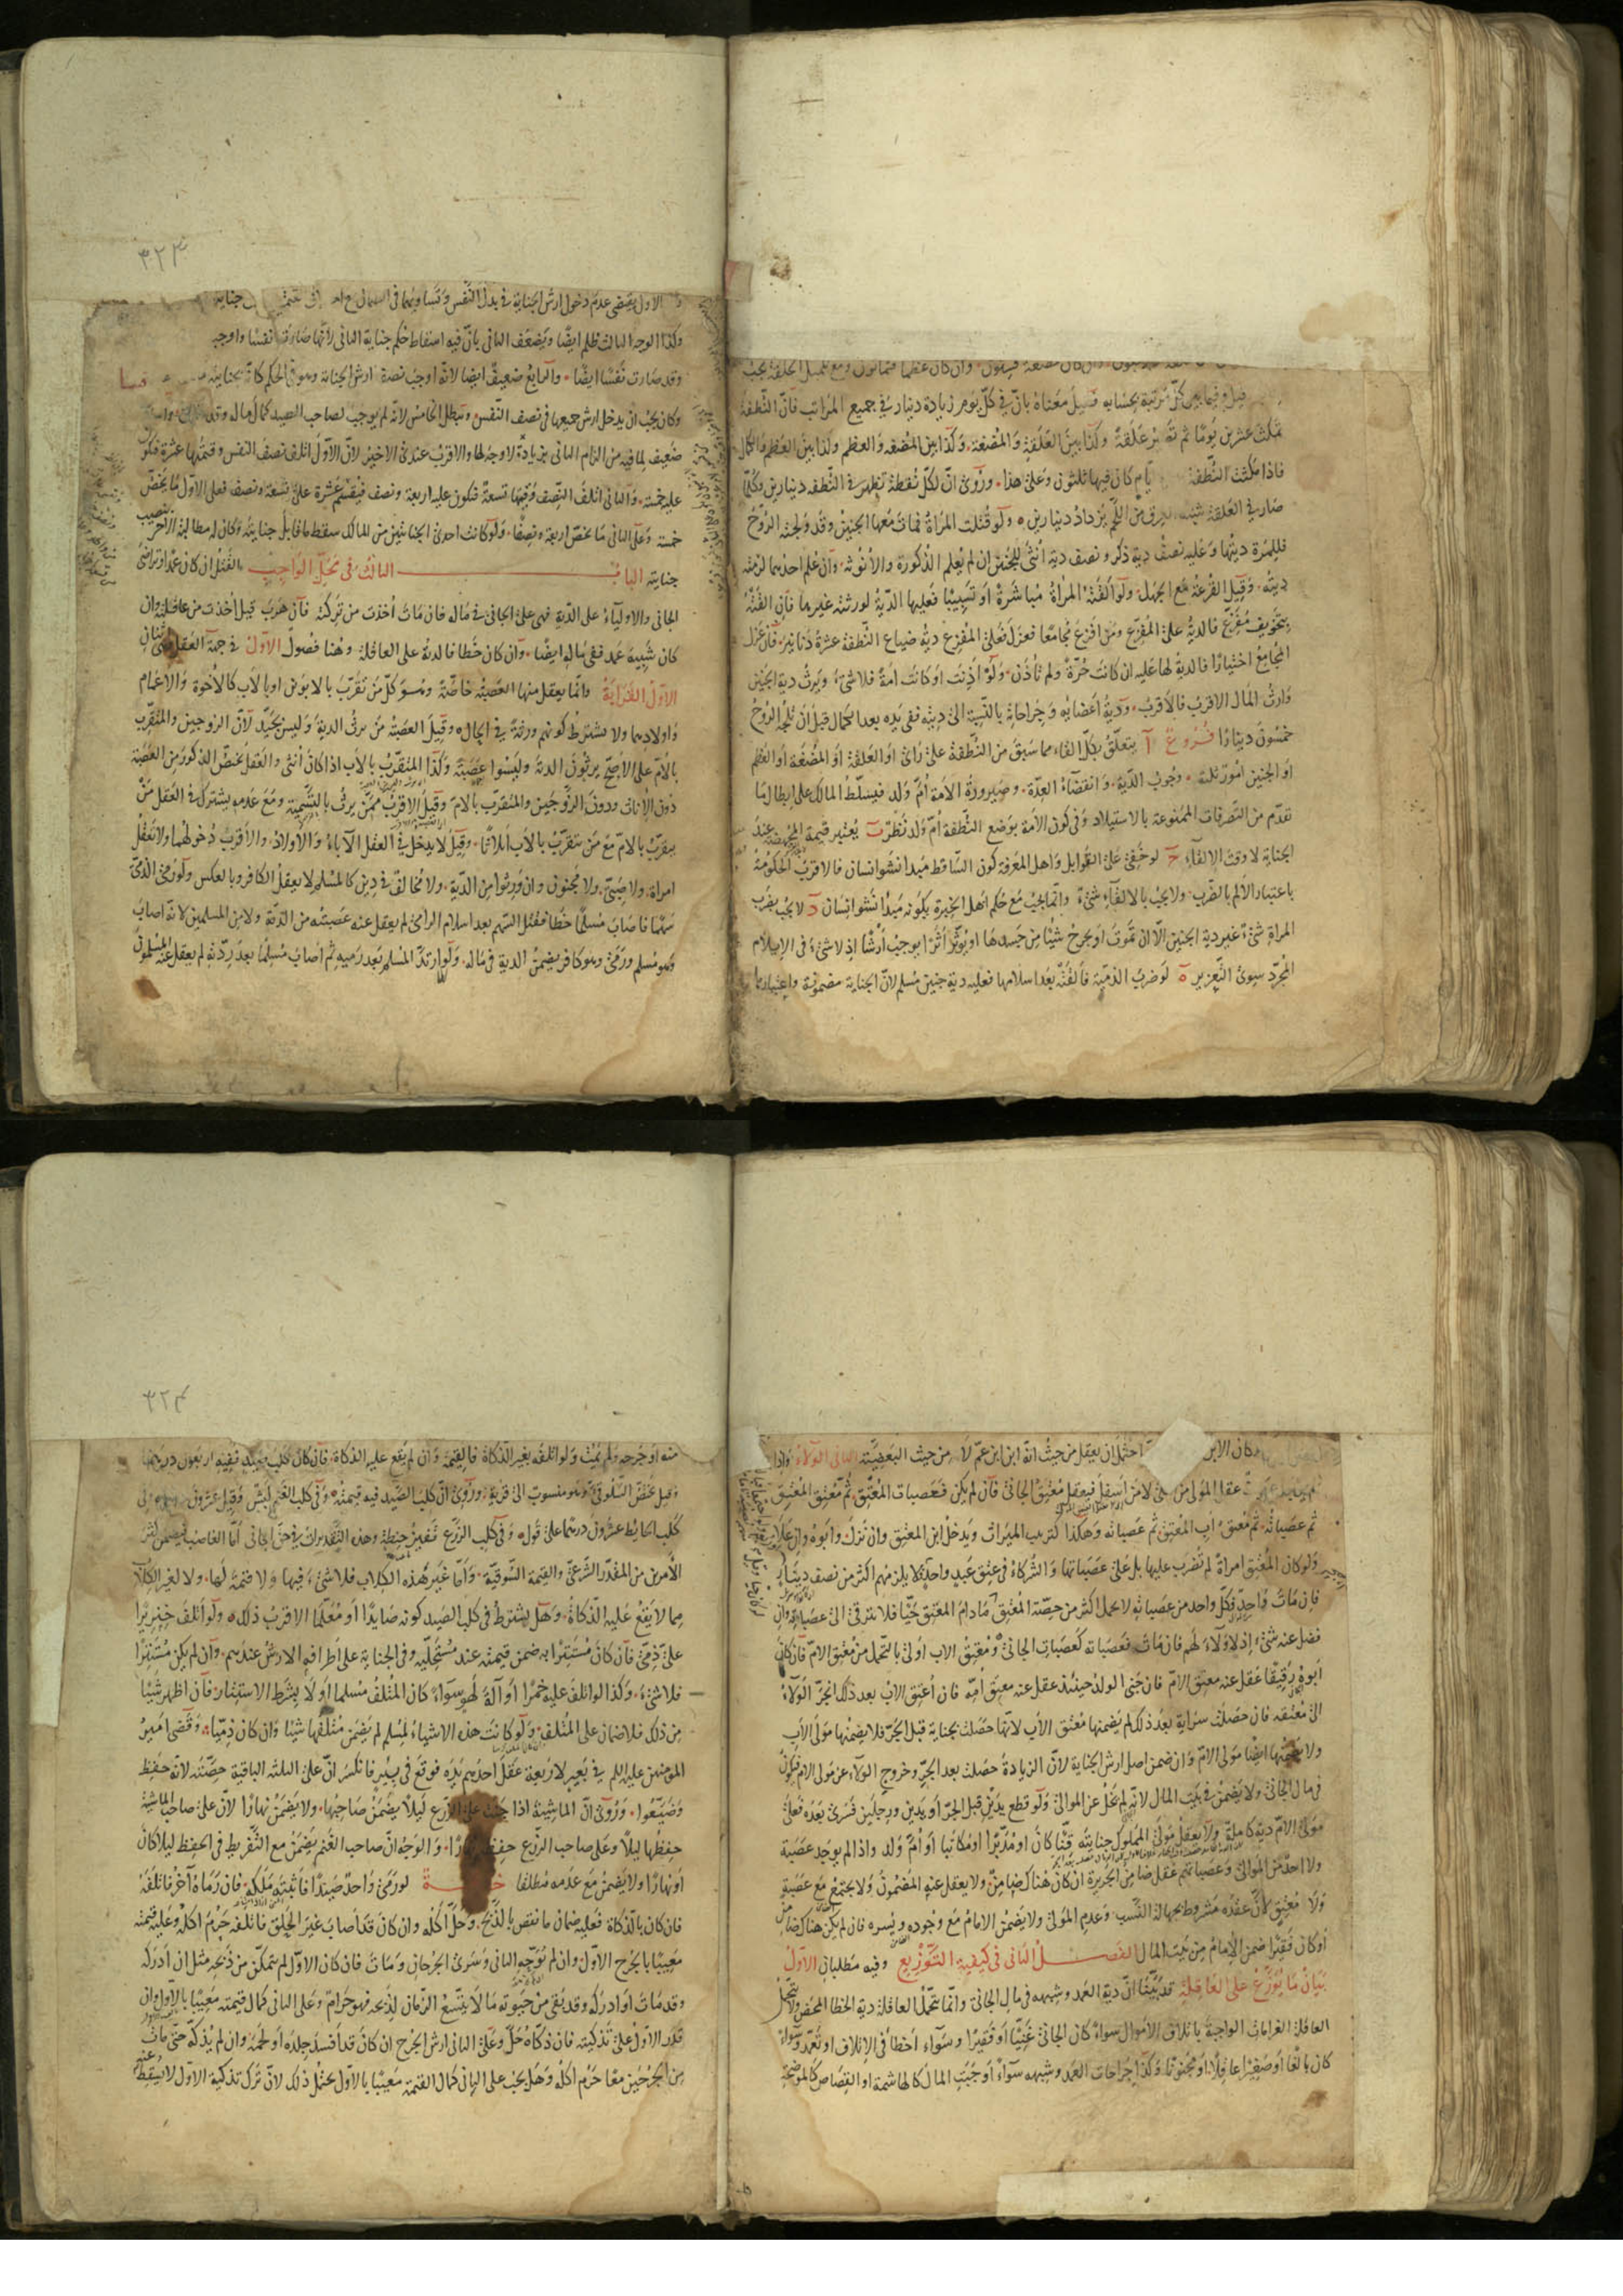 مضغة فستون وان كان عظما فثمانون ومع تكميل الخلقة يجب
قيل وفيما بين كل مرتبة بحسابه قيل معناه بان في كل يوم زيادة دينار في جميع المراتب فان النطفة
تمكث عشرين يوما ثم تصير علقة وكذا بين العلقة والمضغة وكذا بين المضغه والعظم وكذا بين العظم والكمال
فاذا مكثت النطفة ايام كان فيها ثلثون وعلى هذا وروى ان لكل نقطة تظهر في النطفه دينارين وكلما
صار في العلقة شبه العرق من اللحم يزداد دينارين ولو قتلت المراة فمات معها الجنين وقد ولجته الروح
فللمرة ديتها وعليه نصف دية ذكر ونصف دية انثى للجنين ان لم يعلم الذكورة والانوثه وان علم احدهما لزمته
ديته وقيل القرعة مع الجهل ولو القته المراة مباشرة او تسبيبا فعليها الدية لورثته غيرها فان القته
بتخويف مفزع فالدية على المفزع ومن افزع مجامعا فعزل فعلى المفزع دية ضياع النطفة عشرة دنانير فان عزل
المجامع اختيارا فالدية لها عليه ان كانت حرة ولم تأذن ولو اذنت او كانت امة فلا شئ ويرث دية الجنين
وارث المال الاقرب فالاقرب ودية اعضائه وجراحاته بالنسبة الى ديته ففى يده بعد الكمال قبل ان تلجه الروح
خمسون دينارا فروع آ يتعلق بكل القاء مما سبق من النطفة على راى او العلقة او المضغة او العظم
او الجنين امور ثلثة وجوب الدية وانقضاء العدة وصيرورة الامة ام ولد فيسلط المالك على ابطال ما
تقدم من التصرفات الممنوعة بالاستيلاد وفى كون الامة بوضع النطفة ام ولد نظر ب يعتبر قيمة المجهضة عند
الجناية لا وقت الالقاء ج لو خفى على القوابل واهل المعرفة كون الساقط مبدا نشو انسان فالاقرب الحكومة
باعتبار الالم بالضرب ولا يجب بالالقاء شئ وانما يجب مع حكم اهل الخبرة بكونه مبدأ نشو انسان د لا يجب بضرب
المراة شئ غير دية الجنين الا ان تموت او يجرح شيئا من جسدها او يؤثر اثرا يوجب ارشا اذ لا شئ فى الايلام
المجرد سوى التعزير ه لو ضرب الذمية فالقته بعد اسلامها فعليه دية جنين مسلم لان الجناية مضمونة واعتبارها
٣٢٣
الاول يقتضى عدم دخول ارش الجناية في بدل النفس وتساويهما فى جناية
وكذا الوجه الثالث ظلم ايضا ويضعف الثانى بان فيه اسقاط حكم جناية الثانى لانها صادفت نفسا واوجب
وقد صارت نفسا ايضا والرابع ضعيف ايضا لانه اوجب نصف ارش الجناية وهو فى الحكم كانه بجنايته
وكان يجب ان يدخل ارش جميعها فى نصف النفس ويبطل الخامس لانه لم يوجب لصاحب الصيد كمال ماله وقد
ضعيف لما فيه من الزام الثانى بزيادة لا وجه لها والاقرب عندى الاخير لان الاول اتلف نصف النفس وقيمتها عشرة فكون
عليه خمسة والثانى اتلف النصف وقيمتها تسعة فيكون عليه اربعة ونصف فيقسم عشرة على تسعة ونصف فعلى الاول ما يخص
خمسة وعلى الثانى ما يخص اربعة ونصفا ولو كانت احدى الجنايتين من المالك سقط ما قابل جنايته وكان له مطالبة الاخر بنصيب
جنايته الباب الثالث فى محل الواجب القتل ان كان عمدا وتراضى
الجانى والاولياء على الدية فهى على الجانى فى ماله فان مات اخذت من تركته فان هرب قيل اخذت من عاقلته وان
كان شبيه عمد ففى ماله ايضا وان كان خطا فالدية على العاقلة وهنا فصول الاول فى جهة العقل وهى ثنتان
الاول القرابة وانما يعقل منها العصبة خاصة وهو كل من تقرب بالابوين او بالاب كالاخوة والاعمام
واولادهما ولا يشترط كونهم ورثة في الحال وقيل العصبة من يرث الدية وليس بجيد لان الزوجين والمتقرب
بالام على الاصح يرثون الدية وليسوا عصبة وكذا المتقرب بالاب اذا كان انثى والعقل يختص الذكور من العصبة
دون الاناث ودون الزوجين والمتقرب بالام وقيل الاقرب ممن يرث بالتسمية ومع عدمه يشترك فى العقل من
يتقرب بالام مع من يتقرب بالاب اثلاثا وقيل لا يدخل فى العقل الآباء والاولاد والاقرب دخولهما ولا تعقل
امراة ولا صبى ولا مجنون وان ورثوا من الدية ولا مخالف فى دين كالمسلم لا يعقل الكافر وبالعكس ولو رمى الذمى
سهما فاصاب مسلما خطا فقتل السهم بعد اسلام الرامى لم يعقل عنه عصبته من الذمة ولا من المسلمين لانه اصاب
وهو مسلم ورمى وهو كافر فيضمن الدية فى ماله ولو ارتد المسلم بعد رميه ثم اصاب مسلما بعد ردته لم يعقل عنه المسلمون
وكان الابن احتمل ان يعقل من حيث انه ابن ابن عم لا من حيث البعضية الثانى الولاء واذا
عقل المولى من على لا من اسفل فيعقل معتق الجانى فان لم يكن فعصبات المعتق ثم معتق المعتق
ثم عصباته ثم معتق اب المعتق ثم عصباته وهكذا كترتيب الميراث ويدخل ابن المعتق وان نزل وابوه وان علا
ولو كان المعتق امراة لم تضرب عليها بل على عصباتها والشركاء فى عتق عبد واحد لا يلزمهم اكثر من نصف دينار
فان مات واحد فكل واحد من عصباته لا يحمل اكثر من حصته المعتق مادام المعتق حيا فلا يترقى الى عصباته وان
فضل عنه شئ اذ لا ولاء لهم فان مات فعصباته كعصبات الجانى ومعتق الاب اولى بالتحمل من معتق الام فان كان
ابوه رقيقا عقل عنه معتق الام فان جنى الولد حينئذ عقل عنه معتق امه فان اعتق الاب بعد ذلك انجر الولاء
الى معتقه فان حصلت سراية بعد ذلك لم يضمنها معتق الاب لانها حصلت بجناية قبل الجر فلا يضمنها مولى الاب
ولا يضمنها ايضا مولى الام وان ضمن اصل ارش الجناية لان الزيادة حصلت بعد الجر وخروج الولاء عن مولى الام فيكون
فى مال الجانى ولا يضمن فى بيت المال لانه لم يخل عن الموالى ولو قطع يدين قبل الجر او يدين ورجلين فسرى بعده فعلى
مولى الام دية كاملة ولا يعقل مولى المملوك جنايته قنا كان او مدبرا او مكاتبا او ام ولد واذا لم يوجد عصبة
ولا احد من الموالى وعصباتهم عقل ضامن الجريرة ان كان هناك ضامن ولا يعقل عنه المضمون ولا يجتمع مع عصبة
ولا معتق لان عقده مشروط بجهالة النسب وعدم المولى ولا يضمن الامام مع وجوده ويسره فان لم يكن هناك ضامن
او كان فقيرا ضمن الامام من بيت المال الفصل الثانى فى كيفية التوزيع وفيه مطلبان الاول
بيان ما يوزع على العاقلة قد بينا ان دية العمد وشبهه فى مال الجانى وانما تتحمل العاقلة دية الخطا المحض ولا تتحمل
العاقلة الغرامات الواجبة باتلاف الاموال سواء كان الجانى غنيا او فقيرا وسواء اخطا فى الاتلاف او تعمد وسواء
كان بالغا او صغيرا عاقلا او مجنونا وكذا جراحات العمد وشبهه سواء اوجبت المال كالهاشمة او القصاص كالموضحة
٣٢٤
منه او جرحه ولم يمت ولو اتلفه بغير الذكاة فالقيمة وان لم يقع عليه الذكاة فان كان كلب صيد ففيه اربعون درهما
وقيل يختص السلوقى وهو منسوب الى قرية وروى ان كلب الصيد فيه قيمته وفى كلب الغنم كبش وقيل عشرون وفى
كلب الحائط عشرون درهما على قول وفى كلب الزرع قفيز حنطة وهذه التقديرات فى حق الجانى اما الغاصب فيضمن اكثر
الامرين من المقدر الشرعى والقيمة السوقية واما غير هذه الكلاب فلا شئ فيها ولا قيمة لها ولا لغير الكلاب
مما لا يقع عليه الذكاة وهل يشترط فى كلب الصيد كونه صايدا او معلما الاقرب ذلك ولو اتلف خنزيرا
على ذمى فان كان مستترا به ضمن قيمته عند مستحليه وفى الجناية على اطرافه الارش عندهم وان لم يكن مستترا
فلا شئ وكذا لو اتلف عليه خمرا او آلة لهو سواء كان المتلف مسلما او لا بشرط الاستتار فان اظهر شيئا
من ذلك فلا ضمان على المتلف ولو كانت هذه الاشياء لمسلم لم يضمن متلفها شيئا وان كان ذميا وقضى امير
المؤمنين عليه السلم فى بعير لاربعة عقل احدهم يده فوقع فى بير فانكسر ان على الثلثة الباقية حصته لانه حفظ
وضيعوا وروى ان الماشية اذا جنت على الزرع ليلا يضمن صاحبها ولا يضمن نهارا لان على صاحب الماشية
حفظها ليلا وعلى صاحب الزرع حفظه نهارا والوجه ان صاحب الغنم يضمن مع التفريط فى الحفظ ليلا كان
او نهارا ولا يضمن مع عدمه مطلقا لو رمى واحد صيدا فاثبته ملكه فان رماه آخر فاتلفه
فان كان بالذكاة فعليه ضمان ما نقص بالذبح وحل اكله وان كان قد اصاب غير الحلق فاتلفه حرم اكله وعليه قيمته
معيبا بالجرح الاول وان لم يوجه الثانى وسرى الجرحان ومات فان كان الاول لم يتمكن من ذبحه مثل ان ادركه
وقد مات او ادركه وقد بقى من حيوته ما لا يتسع الزمان لذبحه فهو حرام وعلى الثانى كمال قيمته معيبا بالاول وان
قدر الاول على تذكيته فان ذكاه حل وعلى الثانى ارش الجرح ان كان قد افسد جلده او لحمه وان لم يذكه حتى مات
من الجرحين معا حرم اكله وهل يجب على الثانى كمال القيمة معيبا بالاول يحتمل ذلك لان ترك تذكية الاول لا يسقط